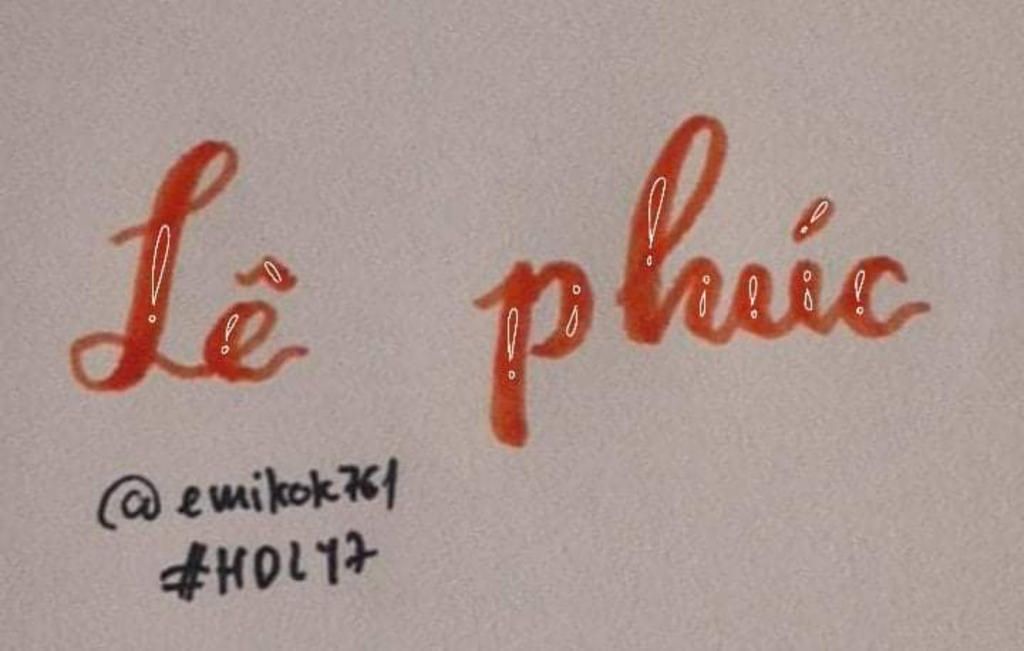 Lê phúc
@emikok761
#HDLY7